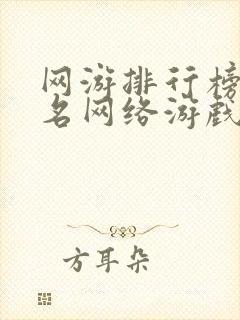 网游排行榜
名网络游戏
方耳朵